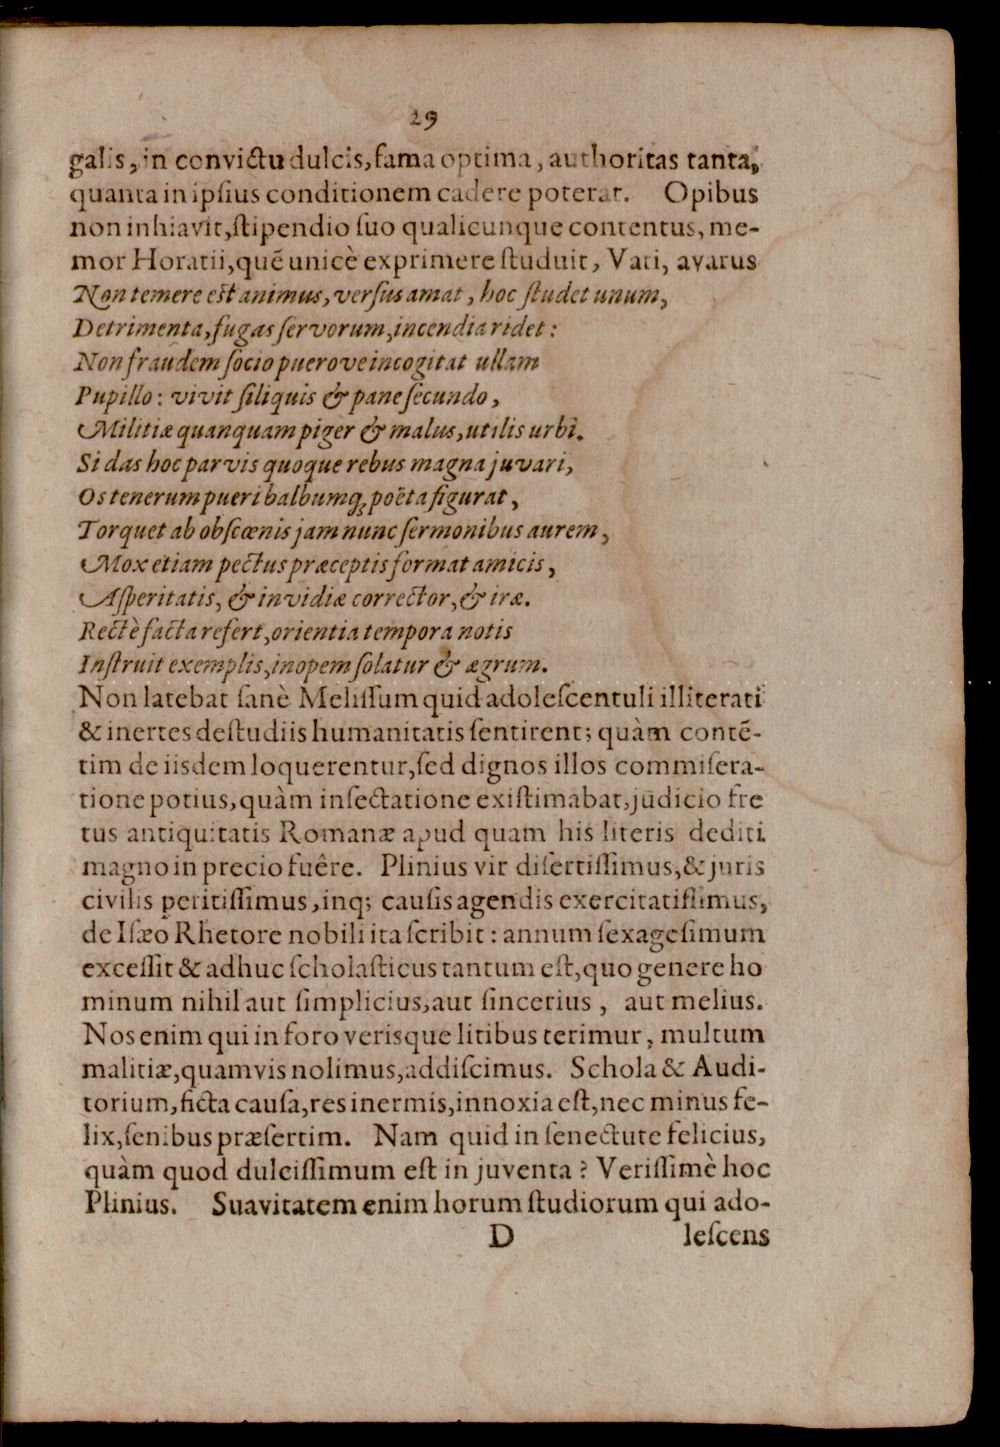 29
galis, in convictu dulcis, fama optima, authoritas tanta,
quanta in ipſius conditionem cadere poterat. Opibus
non inhiavit, ſtipendio ſuo qualicunque contentus, me-
mor Horatii, quē unicè exprimere ſtuduit, Vati, avarus
Non temere eſt animus, verſus amat, hoc ſtudet unum,
Detrimenta, fugas ſervorum, incendia ridet:
Non fraudem ſocio puerove incogitat ullam
Pupillo: vivit ſiliquis & pane ſecundo,
Militiæ quanquam piger & malus, utilis urbi.
Si das hoc parvis quoque rebus magna juvari,
Os tenerum pueri balbumq; poëta figurat,
Torquet ab obſcœnis jam nunc ſermonibus aurem,
Mox etiam pectus præceptis format amicis,
Aſperitatis, & invidiæ corrector, & iræ.
Rectè facta refert, orientia tempora notis
Inſtruit exemplis, inopem ſolatur & ægrum.
Non latebat ſanè Meliſſum quid adoleſcentuli illiterati
& inertes de ſtudiis humanitatis ſentirent; quàm contē-
tim de iisdem loquerentur, ſed dignos illos commiſera-
tione potius, quàm inſectatione exiſtimabat, judicio fre
tus antiquitatis Romanæ apud quam his literis dediti
magno in precio fuêre. Plinius vir diſertiſſimus, & juris
civilis peritiſſimus, inq; cauſis agendis exercitatiſſimus,
de Iſæo Rhetore nobili ita ſcribit: annum ſexageſimum
exceſſit & adhuc ſcholaſticus tantum eſt, quo genere ho
minum nihil aut ſimplicius, aut ſincerius, aut melius.
Nos enim qui in foro verisque litibus terimur, multum
malitiæ, quamvis nolimus, addiſcimus. Schola & Audi-
torium, ficta cauſa, res inermis, innoxia eſt, nec minus fe-
lix, ſenibus præſertim. Nam quid in ſenectute felicius,
quàm quod dulciſſimum eſt in juventa? Veriſſimè hoc
Plinius. Suavitatem enim horum ſtudiorum qui ado-
D leſcens